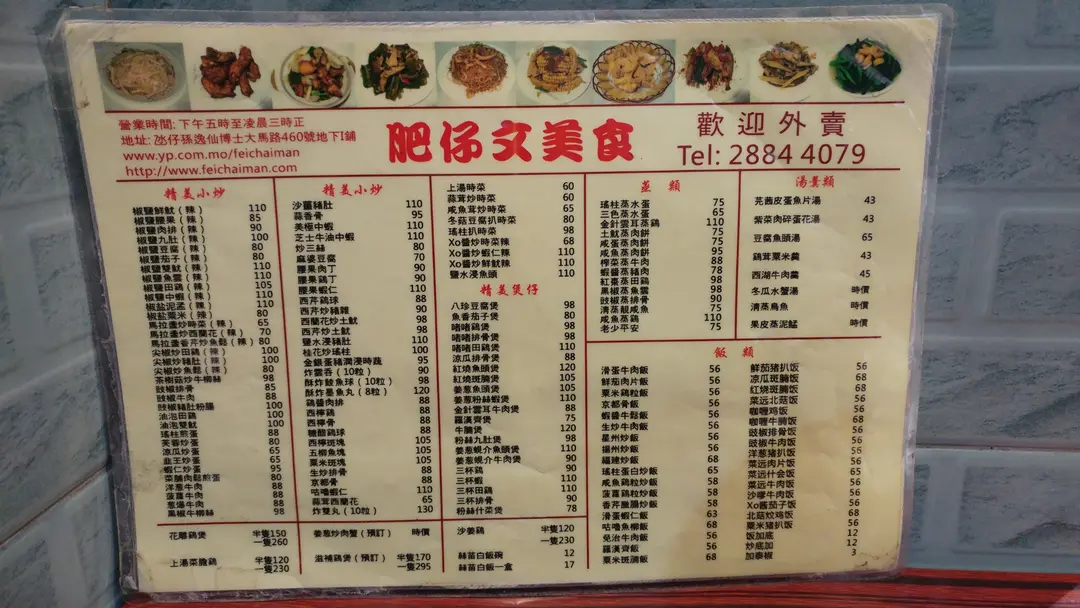 營業時間: 下午五時至凌晨三時正
地址: 氹仔孫逸仙博士大馬路460號地下I鋪
www.yp.com.mo/feichaiman
http://www.feichaiman.com
肥仔文美食
歡迎外賣
Tel: 2884 4079
精美小炒
椒鹽鮮魷(辣) 110
椒鹽腰果(辣) 85
椒鹽肉排(辣) 90
椒鹽九肚(辣) 100
椒鹽豆腐(辣) 80
椒鹽茄子(辣) 80
椒鹽雙魷(辣) 110
椒鹽魚雲(辣) 110
椒鹽田鷄(辣) 105
椒鹽中蝦(辣) 110
椒盐泥孟(辣) 80
椒盐粟米(辣) 80
馬拉盞炒時菜(辣) 65
馬拉盞炒西蘭花(辣) 70
馬拉盞香芹炒魚鬆(辣) 80
尖椒炒田鷄(辣) 100
尖椒炒豬肚(辣) 100
尖椒炒魚鬆(辣) 80
茶樹菇炒牛柳絲 98
豉椒排骨 85
豉椒牛肉 88
豉椒豬肚粉腸 100
油泡田鷄 100
油泡雙魷 100
瑤柱煎蛋 88
芙蓉炒蛋 80
涼瓜炒蛋 65
血王炒蛋 65
蝦仁炒蛋 95
菜脯肉鬆煎蛋 80
洋葱牛肉 88
菠蘿牛肉 88
葱爆牛肉 88
黑椒牛柳絲 98
精美小炒
沙薑豬肚 110
蒜香骨 95
美極中蝦 110
芝士牛油中蝦 110
炒三絲 80
麻婆豆腐 70
腰果肉丁 90
腰果鷄丁 90
腰果蝦仁 110
西芹鷄球 88
西芹炒豬雜 90
西蘭花炒土魷 98
西芹炒土魷 98
鹽水浸豬肚 110
桂花炒瑤柱 100
金銀蛋豬潤浸時蔬 95
炸雲吞(10粒) 90
酥炸鯪魚球(10粒) 98
酥炸墨魚丸(8粒) 120
鷄醬肉排 88
西檸鷄 88
西檸骨 88
糖醋鷄球 88
西檸斑塊 105
五柳魚塊 105
粟米斑塊 105
生炒排骨 88
京都骨 88
咕嚕蝦仁 110
蒜茸西蘭花 65
炸雙丸(10粒) 130
上湯時菜 60
蒜茸炒時菜 60
咸魚茸炒時菜 65
冬菇蝦腐扒時菜 80
瑤柱扒時菜 98
Xo醬炒時菜辣 68
Xo醬炒蝦仁辣 110
Xo醬炒鮮魷辣 110
鹽水浸魚頭 110
精美煲仔
八珍豆腐煲 98
魚香茄子煲 80
啫啫鷄煲 98
啫啫排骨煲 98
啫啫田鷄煲 110
涼瓜排骨煲 88
紅燒魚頭煲 120
紅燒斑腩煲 105
姜葱魚頭煲 105
姜葱粉絲蝦煲 110
金針雲耳牛肉煲 88
羅漢齋煲 75
牛腩煲 120
粉絲九肚煲 98
姜葱蜆介魚頭煲 110
姜葱蜆介牛肉煲 90
三杯鷄 90
三杯蝦 110
三杯田鷄 110
三杯排骨 90
粉絲什菜煲 78
蒸 類
瑤柱蒸水蛋 75
三色蒸水蛋 75
金針雲耳蒸鷄 110
土魷蒸肉餅 88
咸蛋蒸肉餅 75
咸魚蒸肉餅 95
榨菜蒸牛肉 88
蝦醬蒸豬肉 78
紅棗蒸田鷄 110
黑椒蒸魚雲 98
豉椒蒸排骨 90
清蒸靚咸魚 75
咸魚蒸鷄 110
老少平安 75
湯羹類
芫茜皮蛋魚片湯 43
紫菜肉碎蛋花湯 43
豆腐魚頭湯 65
鷄茸粟米羹 43
西湖牛肉羹 45
冬瓜水蟹湯 時價
清蒸烏魚 時價
果皮蒸泥鯭 時價
飯 類
滑蛋牛肉飯 56
鮮茄肉片飯 56
粟米鷄粒飯 56
京都骨飯 56
蝦醬牛鬆飯 56
生炒牛肉飯 56
星州炒飯 56
揚州炒飯 56
福建炒飯 68
瑤柱蛋白炒飯 65
咸魚鷄粒炒飯 58
菠蘿鷄粒炒飯 58
香芹臘腸炒飯 58
滑蛋蝦仁飯 63
咕嚕魚柳飯 68
免治牛肉飯 56
羅漢齋飯 56
粟米斑腩飯 68
鮮茄猪扒饭 56
凉瓜斑腩饭 68
红烧斑腩饭 68
菜远北菇饭 56
咖喱鸡饭 56
咖喱牛腩饭 68
豉椒排骨饭 56
豉椒牛肉饭 56
洋葱猪扒饭 56
菜远肉片饭 56
菜远什会饭 65
菜远牛肉饭 56
沙嗲牛肉饭 56
Xo醬茄子饭 56
北菇炆鸡饭 68
粟米猪扒饭 56
饭加底 12
炒底加 12
加泰椒 3
花雕鷄煲 半隻150
一隻260
上湯菜膽鷄 半隻120
一隻230
姜葱炒肉蟹(預訂) 時價
滋補鷄煲(預訂) 半隻170
一隻295
沙姜鷄 半隻120
一隻230
絲苗白飯碗 12
絲苗白飯一盒 17